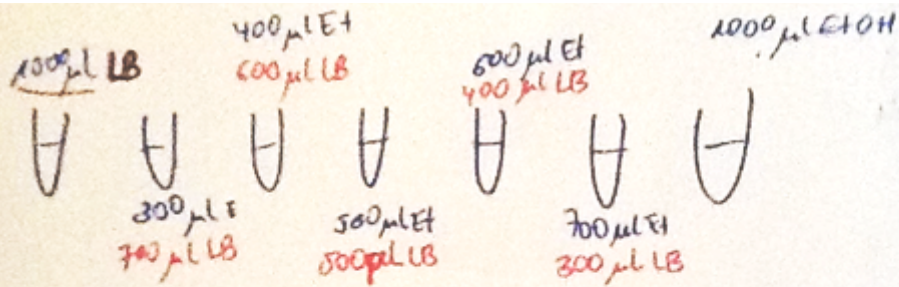 1000 µl LB
400 µl Et
600 µl LB
600 µl Et
400 µl LB
1000 µl EtOH
300 µl E
700 µl LB
500 µl Et
500 µl LB
700 µl Et
300 µl LB